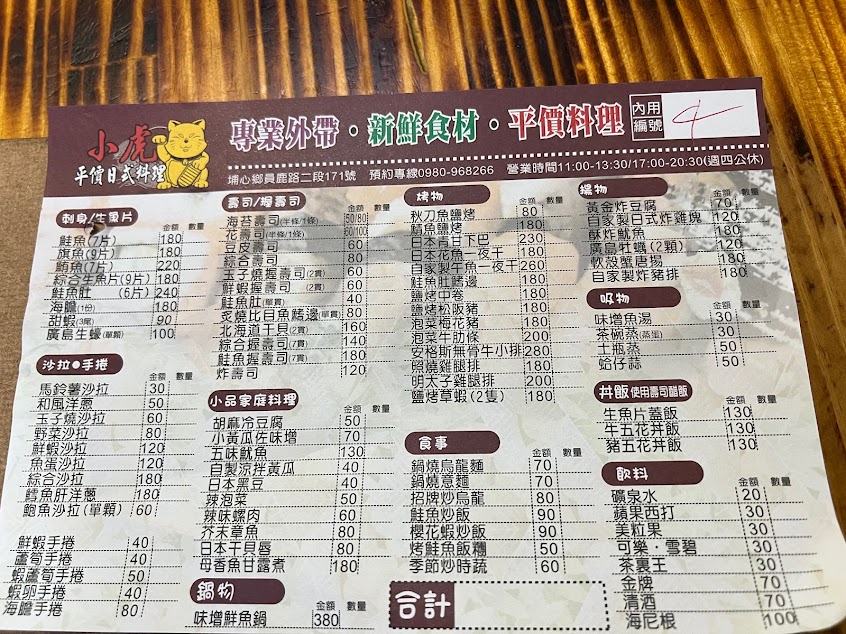 小虎
平價日式料理
專業外帶・新鮮食材・平價料理
內用編號 4
埔心鄉員鹿路二段171號 預約專線0980-968266 營業時間11:00-13:30/17:00-20:30(週四公休)
刺身/生魚片 金額 數量
鮭魚(7片) 180
旗魚(9片) 180
鮪魚(7片) 220
綜合生魚片(9片) 180
鮭魚肚 (6片) 240
海膽(1份) 180
甜蝦(3尾) 90
廣島生蠔(單顆) 100
沙拉●手捲 金額 數量
馬鈴薯沙拉 30
和風洋蔥 50
玉子燒沙拉 60
野菜沙拉 80
鮮蝦沙拉 120
魚蛋沙拉 120
綜合沙拉 180
鱈魚肝洋蔥 180
鮑魚沙拉(單顆) 60
鮮蝦手捲 40
蘆筍手捲 40
蝦蘆筍手捲 50
蝦卵手捲 40
海膽手捲 80
壽司/握壽司 金額 數量
海苔壽司(半條/1條) 50/80
花壽司(半條/1條) 60/100
豆皮壽司 60
綜合壽司 80
玉子燒握壽司(2貫) 60
鮮蝦握壽司 (2貫) 60
鮭魚肚(單貫) 40
炙燒比目魚鰭邊(單貫) 80
北海道干貝(2貫) 160
綜合握壽司(7貫) 140
鮭魚握壽司(7貫) 180
炸壽司 120
小品家庭料理 金額 數量
胡麻冷豆腐 50
小黃瓜佐味增 70
五味魷魚 130
自製涼拌黃瓜 40
日本黑豆 40
辣泡菜 50
辣味螺肉 60
芥末章魚 80
日本干貝唇 80
母香魚甘露煮 180
鍋物 金額 數量
味增鮮魚鍋 380
烤物 金額 數量
秋刀魚鹽烤 80
鯖魚鹽烤 180
日本青甘下巴 230
日本花魚一夜干 180
自家製午魚一夜干 260
鮭魚肚鰭邊 180
鹽烤中卷 180
鹽烤松阪豬 180
泡菜梅花豬 180
泡菜牛肋條 200
安格斯無骨牛小排 280
照燒雞腿排 180
明太子雞腿排 200
鹽烤草蝦(2隻) 180
食事 金額 數量
鍋燒烏龍麵 70
鍋燒意麵 70
招牌炒烏龍 80
鮭魚炒飯 90
櫻花蝦炒飯 90
烤鮭魚飯糰 50
季節炒時蔬 60
合計
揚物 金額 數量
黃金炸豆腐 70
自家製日式炸雞塊 120
酥炸魷魚 180
廣島牡蠣(2顆) 120
軟殼蟹唐揚 180
自家製炸豬排 180
吸物 金額 數量
味增魚湯 30
茶碗蒸(蒸蛋) 30
土瓶蒸 50
蛤仔蒜 50
丼飯 使用壽司醋飯 金額 數量
生魚片蓋飯 130
牛五花丼飯 130
豬五花丼飯 130
飲料 金額 數量
礦泉水 20
蘋果西打 30
美粒果 30
可樂・雪碧 30
茶裏王 30
金牌 70
清酒 70
海尼根 100